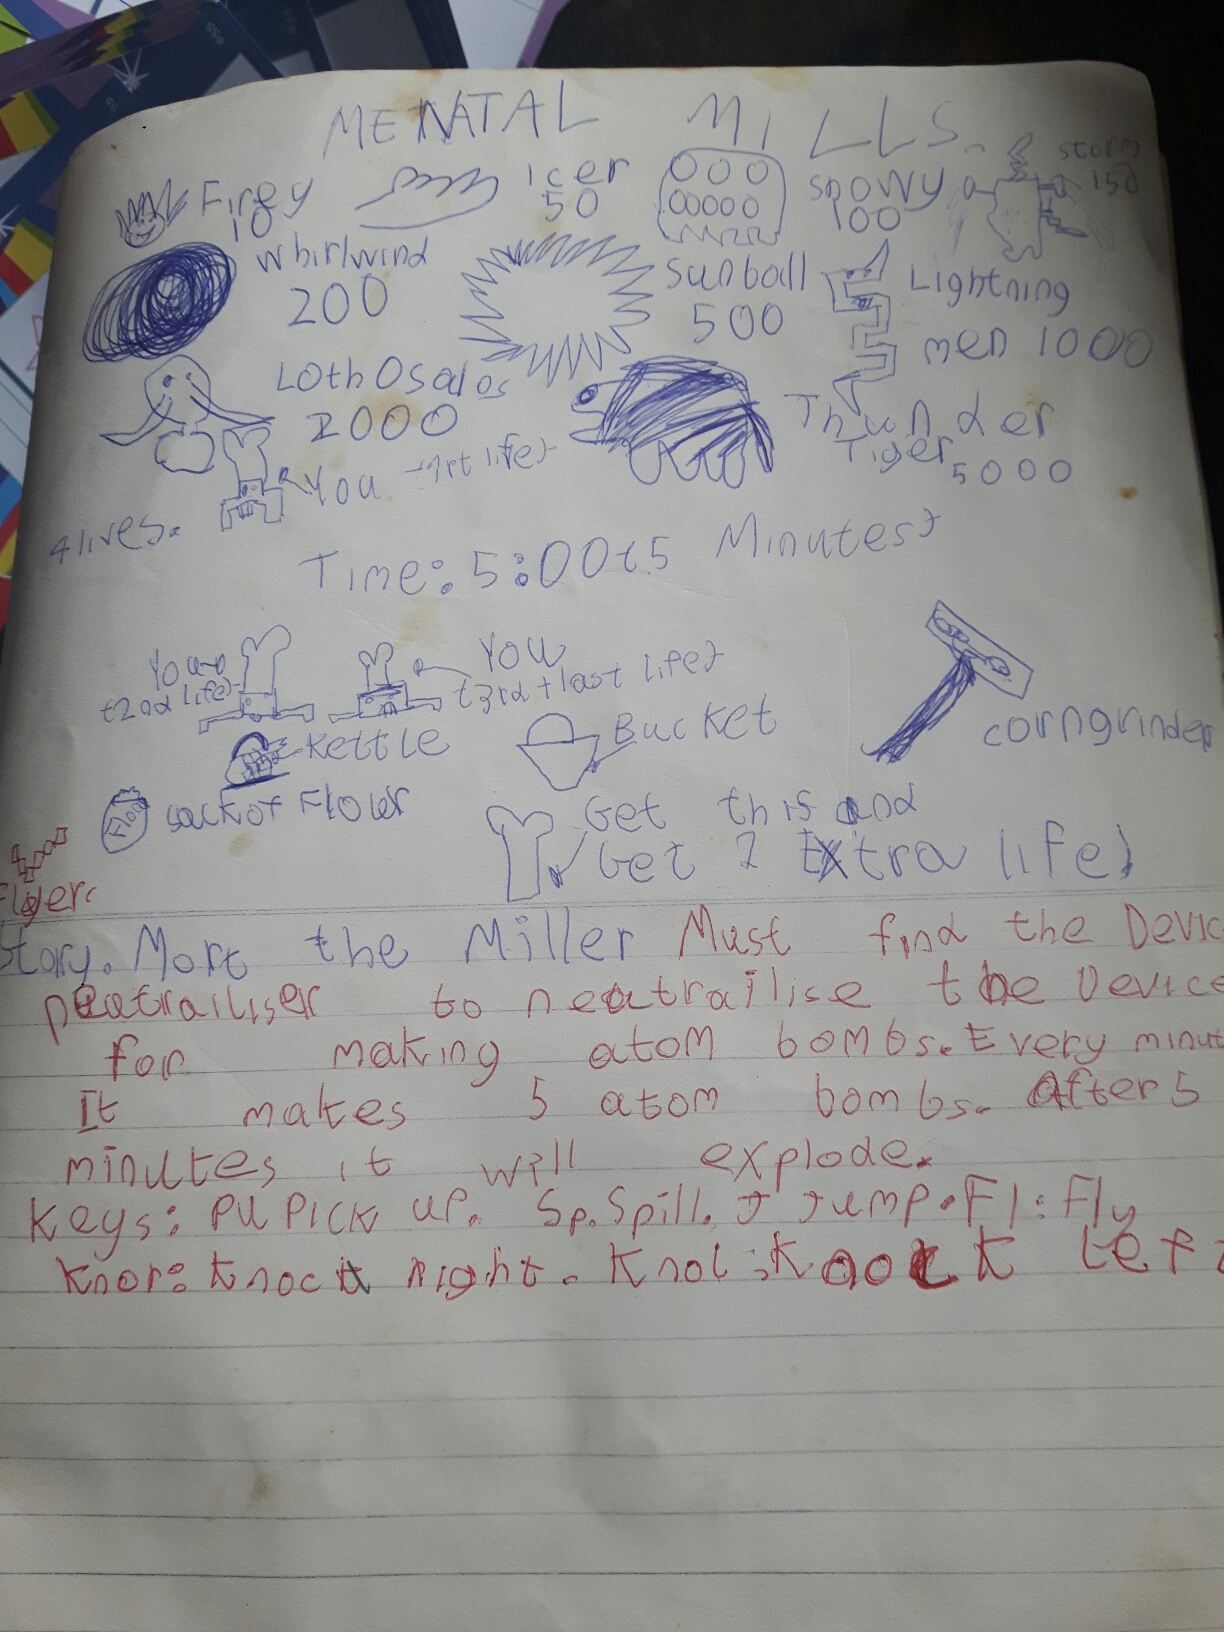 MENATAL MILLS.
Firey
10
Icer
50
snowy
100
storm
150
Whirlwind
200
Sunball
500
Lightning
men 1000
Lothosalos
2000
Thunder
Tiger
5000
You (1rt life)
4 lives.
Time: 5:00 (5 Minutes)
You
(2nd life)
You
(3rd + last life)
Kettle
Bucket
corngrinder
Flou
sack of Flour
Get this and
Get 1 Extra life)
Flyer
Story. Mort the Miller Must find the Devic
neatrailiser to neatrailise the Device
for making atom bombs. Every minut
It makes 5 atom bombs. After 5
minutes it will explode.
Keys: PU PICK UP. Sp. Spill. J Jump. Fl: Fly
Knor: Knock right. Knol: Knock Left